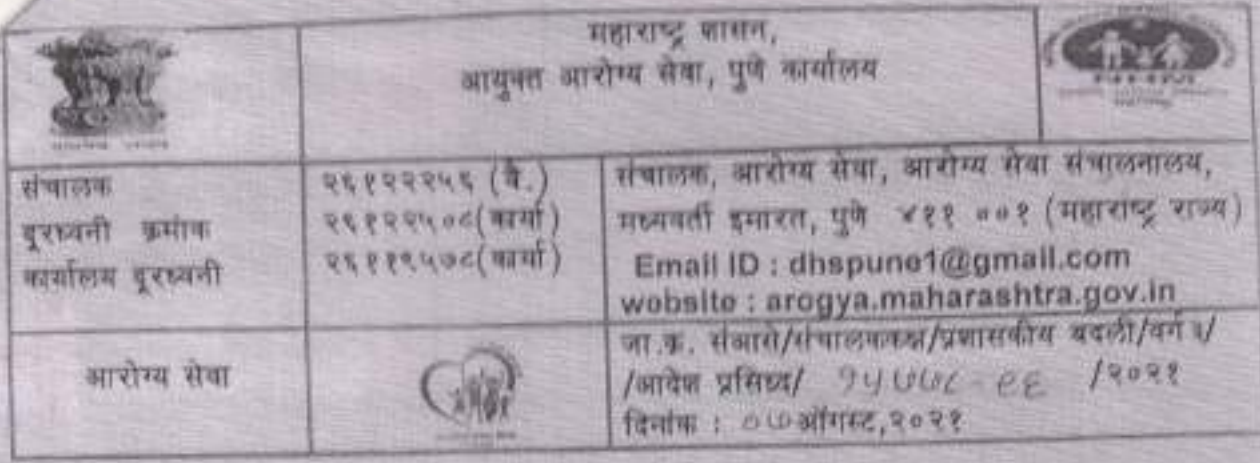 महाराष्ट्र शासन,
आयुक्त आरोग्य सेवा, पुणे कार्यालय
संचालक
दूरध्वनी क्रमांक
कार्यालय दूरध्वनी
२६१२२२५६ (वै.)
२६१२२५०८(कार्या)
२६११९५७८(कार्या)
संचालक, आरोग्य सेवा, आरोग्य सेवा संचालनालय,
मध्यवर्ती इमारत, पुणे ४११ ००१ (महाराष्ट्र राज्य)
Email ID : dhspune1@gmail.com
website : arogya.maharashtra.gov.in
आरोग्य सेवा
जा.क्र. संआसे/संचालककक्ष/प्रशासकीय बदली/वर्ग ३/
/आदेश प्रसिध्द/ १५७७८-९६ /२०२१
दिनांक : ०७ऑगस्ट,२०२१